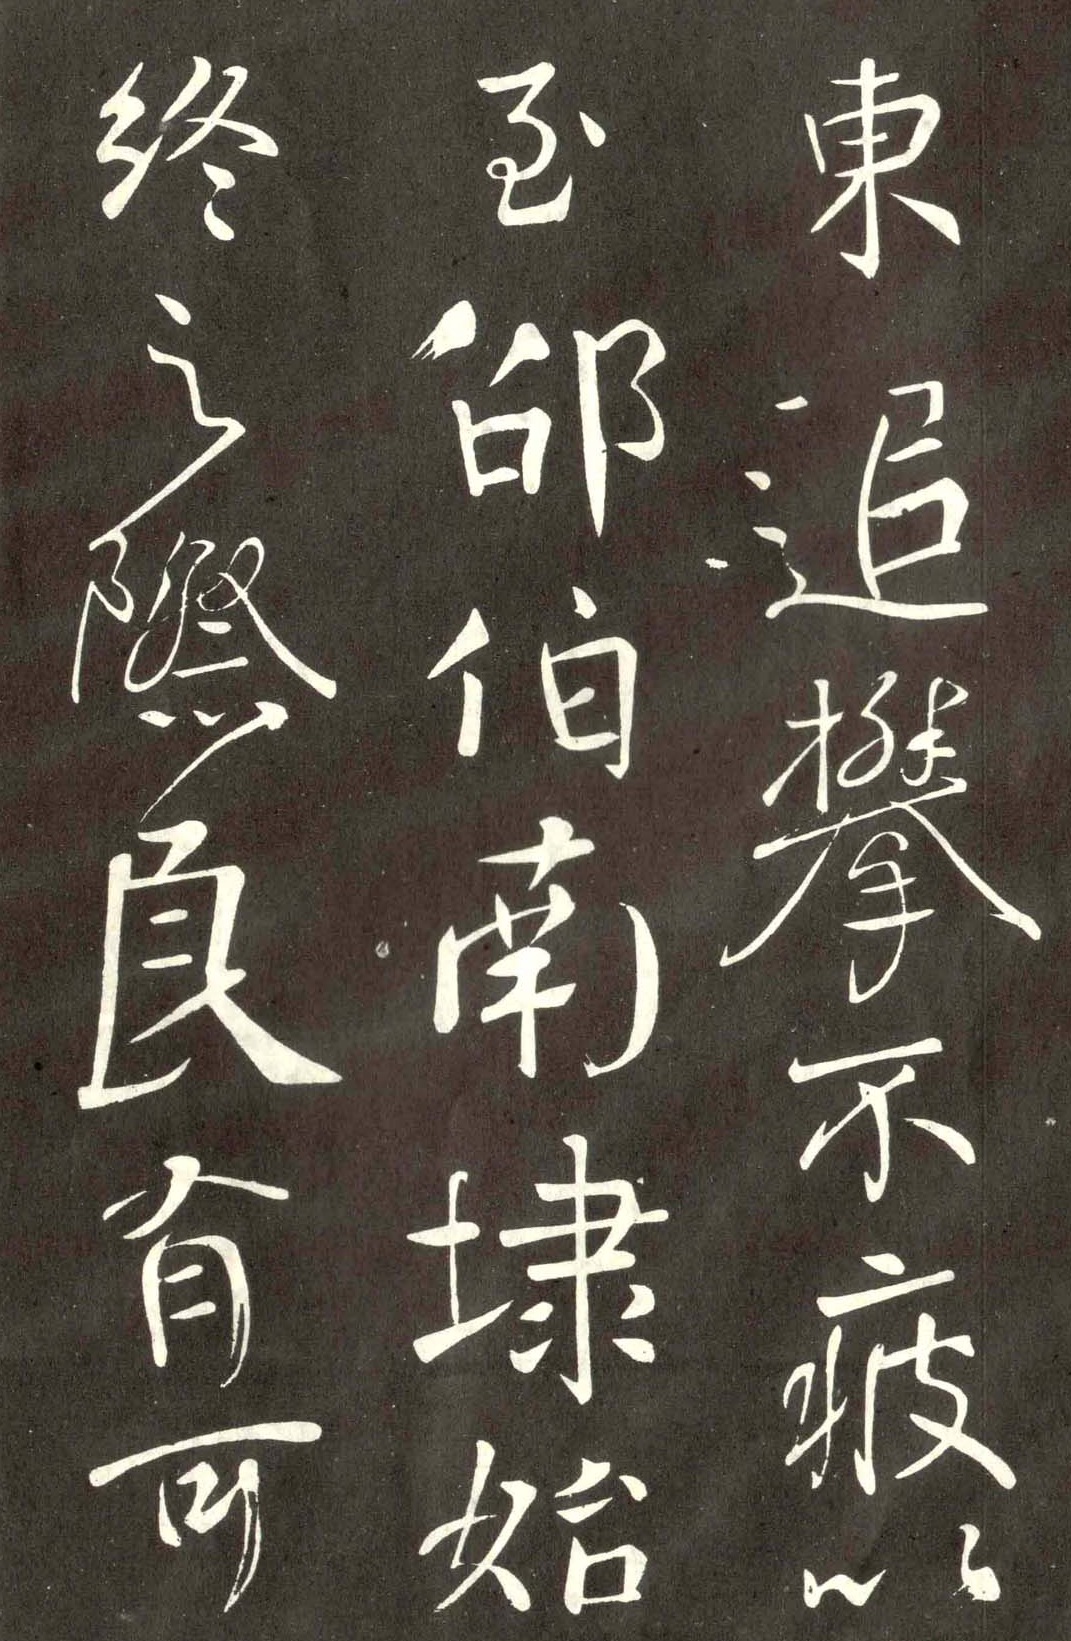 東追攀不疲以
至邵伯南埭始
終之際良有可